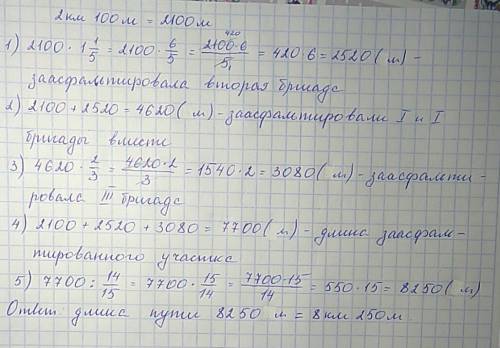 2км 100м = 2100м
1) 2100 · 1 1/5 = 2100 · 6/5 = 2100·6/5 = 420·6 = 2520 (м) -
420
1
заасфальтировала вторая бригада
2) 2100 + 2520 = 4620 (м) - заасфальтировали I и I
бригады вместе
3) 4620 · 2/3 = 4620·2/3 = 1540·2 = 3080 (м) - заасфальти-
ровала III бригада
4) 2100 + 2520 + 3080 = 7700 (м) - длина заасфаль-
тированного участка
5) 7700 : 14/15 = 7700 · 15/14 = 7700·15/14 = 550·15 = 8250 (м)
Ответ: длина пути 8250 м = 8км 250м.